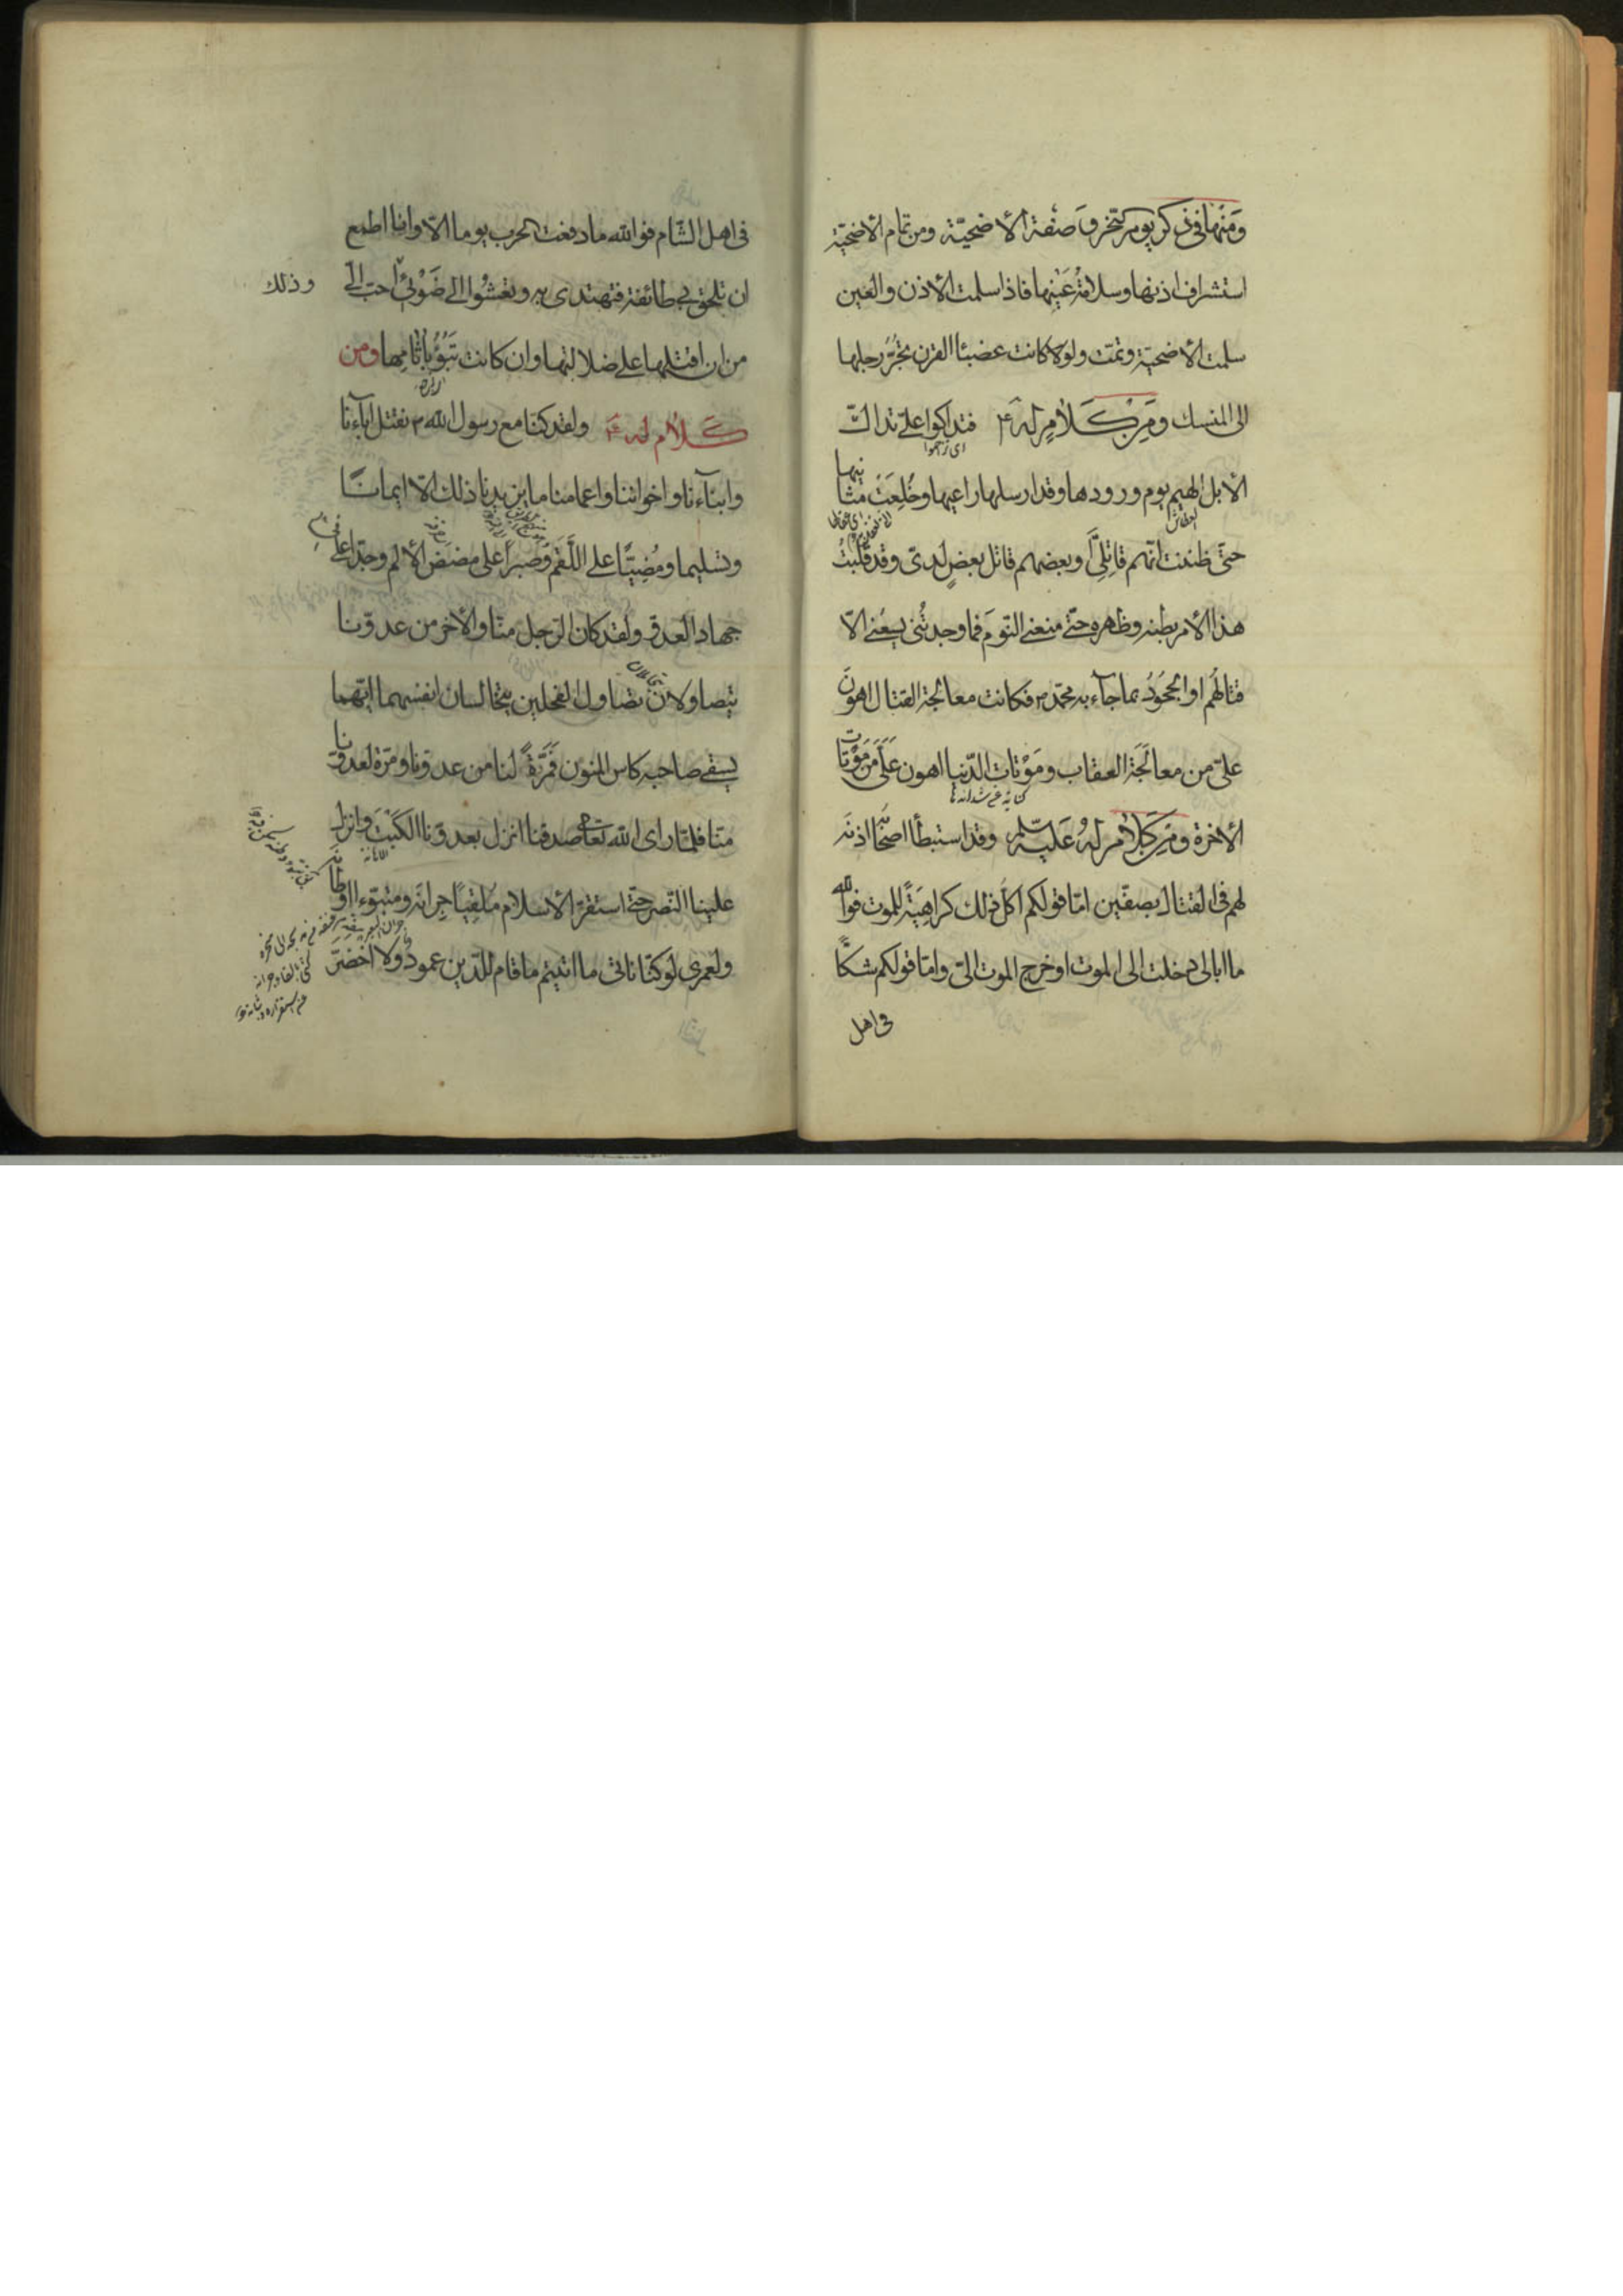 ومنها فى ذكر يوم النحر وصفة الأضحيّة ومن تمام الأضحيّة
استشراف اذنها وسلامة عينها فاذا سلمت الأذن والعين
سلمت الأضحيّة وتمّت ولو كانت عضباء القرن تجرّ رجلها
الى المنسك ومن كلام له ع فتداكّوا علىّ تداكّ
اى زحموا
الأبل الهيم يوم ورودها وقد ارسلها راعيها وخلعت مثانيها
العطاش
حتى ظننت انّهم قاتلىّ او بعضهم قاتل بعض لدىّ وقد قلّبت
هذا الأمر بطنه وظهره حتّى منعنى النّوم فما وجدتنى يسعنى الّا
قتالهم او الجحود بما جاء به محمّد ص فكانت معالجة القتال اهون
علىّ من معالجة العقاب وموتات الدّنيا اهون علىّ من موتات
كناية عن شدائدها
الأخرة ومن كلام له عليه السلم وقد استبطأ اصحابه اذنه
لهم فى القتال بصفّين امّا قولكم اكلّ ذلك كراهيةً للموت فوالله
ما ابالى دخلت الى الموت او خرج الموت الىّ وامّا قولكم شكّاً
فى اهل
فى اهل الشّام فوالله ما دفعت الحرب يوما الّا وانا اطمع
ان تلحق بى طائفة فتهتدى بى وتعشوا الى ضوئى احبّ الىّ
وذلك
من ان اقتلها على ضلالتها وان كانت تبوء بآثامها ومن
كلام له ع ولقد كنّا مع رسول الله ص نقتل اباءنا
وابناءنا واخواننا واعمامنا ما يزيدنا ذلك الّا ايمانا
وتسليما ومضيّاً على اللّقم وصبراً على مضض الألم وجدّا على
جهاد العدوّ ولقد كان الرّجل منّا والأخر من عدوّنا
يتصاولان تصاول الفحلين يتخالسان انفسهما ايّهما
يسقى صاحبه كاس المنون فمرّةً لنا من عدوّنا ومرّة لعدوّنا
منّا فلمّا راى الله تعا صدقنا انزل بعدوّنا الكبت وانزل
علينا النّصر حتّى استقرّ الأسلام ملقياً جرانه ومتبوّءا اوطانه
ولعمرى لو كنّا ناتى ما اتيتم ما قام للدّين عمود ولا اخضرّ